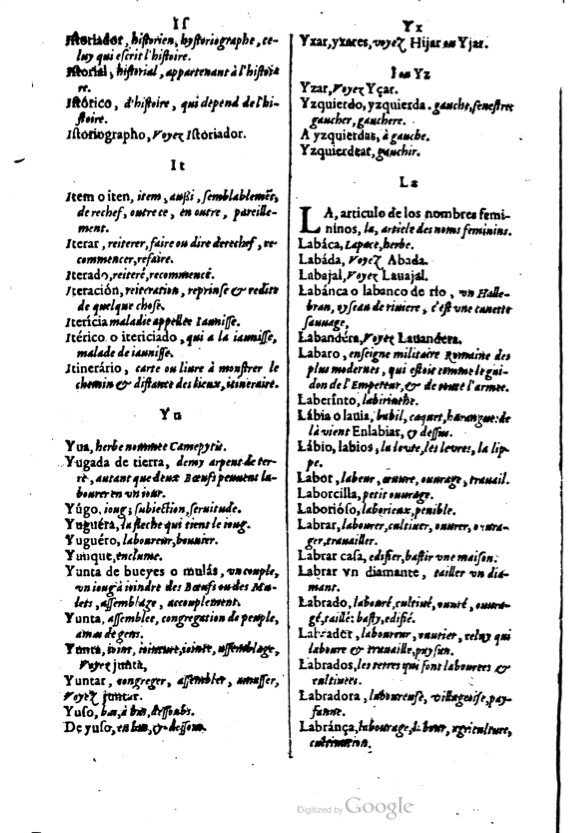 Is
Istoriador, historien, hystoriographe, ce-
luy qui escrit l'histoire.
Istorial, historial, appartenant à l'histoi
re.
Istórico, d'histoire, qui depend de l'hi-
stoire.
Istoriographo, Voyez Istóriador.
It
Item o iten, item, aussi, semblablemẽt,
de rechef, outre ce, en outre, pareille-
ment.
Iterar, reiterer, faire ou dire derechef, re
commencer, refaire.
Iterado, reiteré, recommencé.
Iteración, reiteration, reprinse & redite
de quelque chose.
Iterícia maladie appellee Iaunisse.
Itérico o itericiado, qui a la iaunisse,
malade de iaunisse.
Itinerário, carte ou liure à monstrer le
chemin & distance des lieux, itineraire.
Yu
Yua, herbe nommee Camepytis.
Yugada de tierra, demy arpent de ter-
re, autant que deux Bœufs peuuent la-
bourer en vn iour.
Yúgo, ioug; subiection, seruitude.
Yuguéra, la fleche qui tient le ioug.
Yuguéro, laboureur, bouuier.
Yunque, enclume.
Yunta de bueyes o mulás, vn couple,
vn ioug à ioindre des Bœufs ou des Mu-
lets, assemblage, accouplement.
Yunta, assemblee, congregation de peuple,
amas de gens.
Yunta, ioint, iointure, iointe, assemblage,
Voyez junta,
Yuntar, congreger, assembler, amasser,
Voyez juntar.
Yuso, bas, à bas, dessoubs.
De yuso, en bas, & dessous.
Yx
Yxar, yxares, voyez Hijar ou Yjar.
I ou Yz
Yzar, Voyez Yçar.
Yzquierdo, yzquierda. gauche, senestre
gaucher, gauchere.
A yzquierdas, à gauche.
Yzquierdear, gauchir.
La
LA, articulo de los nombres femi-
ninos, la, article des noms feminins.
Labáca, Lapace, herbe.
Labáda, Voyez Abada.
Labajal, Voyez Lauajal.
Labánca o labanco de río, vn Halle-
bran, oyseau de riuiere, c'est vne canette
sauuage,
Labandéra, Voyez Lauandera.
Labaro, enseigne militaire Romaine des
plus modernes, qui estoit comme le gui-
don de l'Empereur, & de toute l'armee.
Laberínto, labirinthe.
Lábia o lauia, babil, caquet, harangue: de
là vient Enlabiar, & dessus.
Lábio, labios, la leure, les leures, la lip-
pe.
Labor, labeur, œuure, ouurage, trauail.
Laborcilla, petit ouurage.
Laborióso, laborieux, penible.
Labrar, labourer, cultiuer, ouurer, ouura-
ger, trauailler.
Labrar casa, edifier, bastir vne maison.
Labrar vn diamante, tailler vn dia-
mant.
Labrado, labouré, cultiué, ouuré, ouura-
gé, taillé: basty, edifié.
Labrador, laboureur, ouurier, celuy qui
laboure & trauaille, paysan.
Labrados, les terres qui sont labourees &
cultiuees.
Labradora, laboureuse, villageoise, pay-
sanne.
Labránça, labourage, labeur, agriculture,
cultiuation.
Digitized by Google